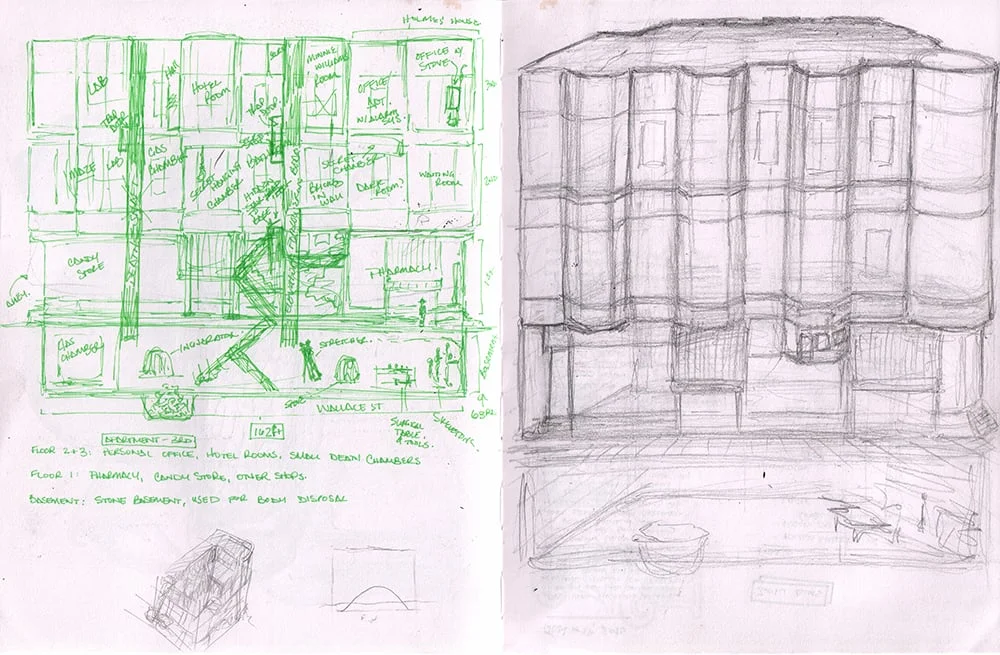 HOLMES' HOUSE
LAB
HALL
HOTEL
ROOM
TRAP
DOOR
MINNIE
WILLIAMS
ROOM
OFFICE
APT.
W/ALARM
SYS.
OFFICE W/
STOVE
3RD
TRAP
DOOR
MAZE
LAB
GAS
CHAMBER
SECRET
HANGING
CHAMBER
BRICKED
IN
WALL
SECRET
CHAMBER
DARK
ROOM?
WAITING
ROOM
2ND
CANDY
STORE
PHARMACY.
1ST
GAS
CHAMBER
INCINERATOR
STRETCHER
BASEMENT
WALLACE ST
162FT
SURGICAL
TABLE
& TOOLS.
SKELETONS
APARTMENT - 3RD
FLOOR 2+3: PERSONAL OFFICE, HOTEL ROOMS, SMALL DEATH CHAMBERS
FLOOR 1: PHARMACY, CANDY STORE, OTHER SHOPS.
BASEMENT: STONE BASEMENT, USED FOR BODY DISPOSAL